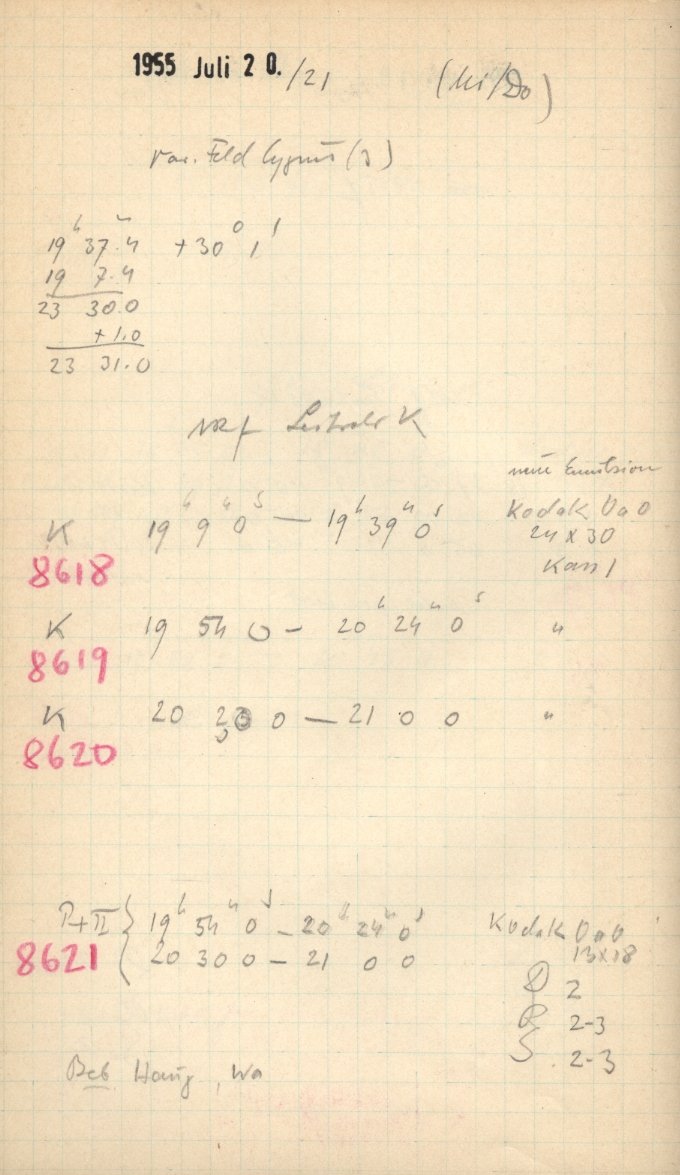 1955 Juli 20./21 (Mi/Do)
Var. Feld Cygnus (3)
19h 37m.4 +30° 1'
19 7.4
23 30.0
+1.0
23 31.0
K
neue Emulsion
K 19h 9m 0s — 19h 39m 0s Kodak OaO
24 x 30
8618 Kass 1
K 19 54 0 — 20h 24m 0s "
8619
K 20 30 0 — 21 0 0 "
8620
P+II { 19h 54m 0s — 20h 24m 0s Kodak OaO
8621 20 30 0 — 21 0 0 13x18
D 2
R 2-3
S. 2-3
Beb Haug, Wa